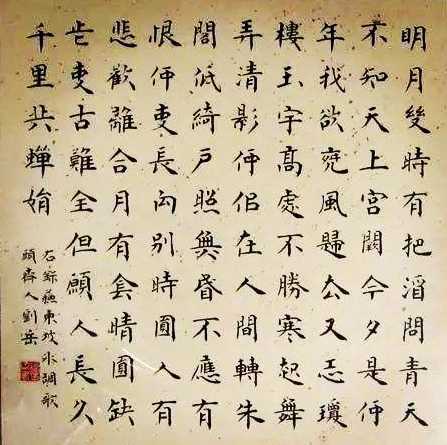 明月幾時有把酒問青天
不知天上宮闕今夕是何
年我欲乘風歸去又恐瓊
樓玉宇高處不勝寒起舞
弄清影何似在人間轉朱
閣低綺戶照無眠不應有
恨何事長向別時圓人有
悲歡離合月有陰晴圓缺
此事古難全但願人長久
千里共嬋娟
右錄蘇東坡水調歌
頭 人劉岳